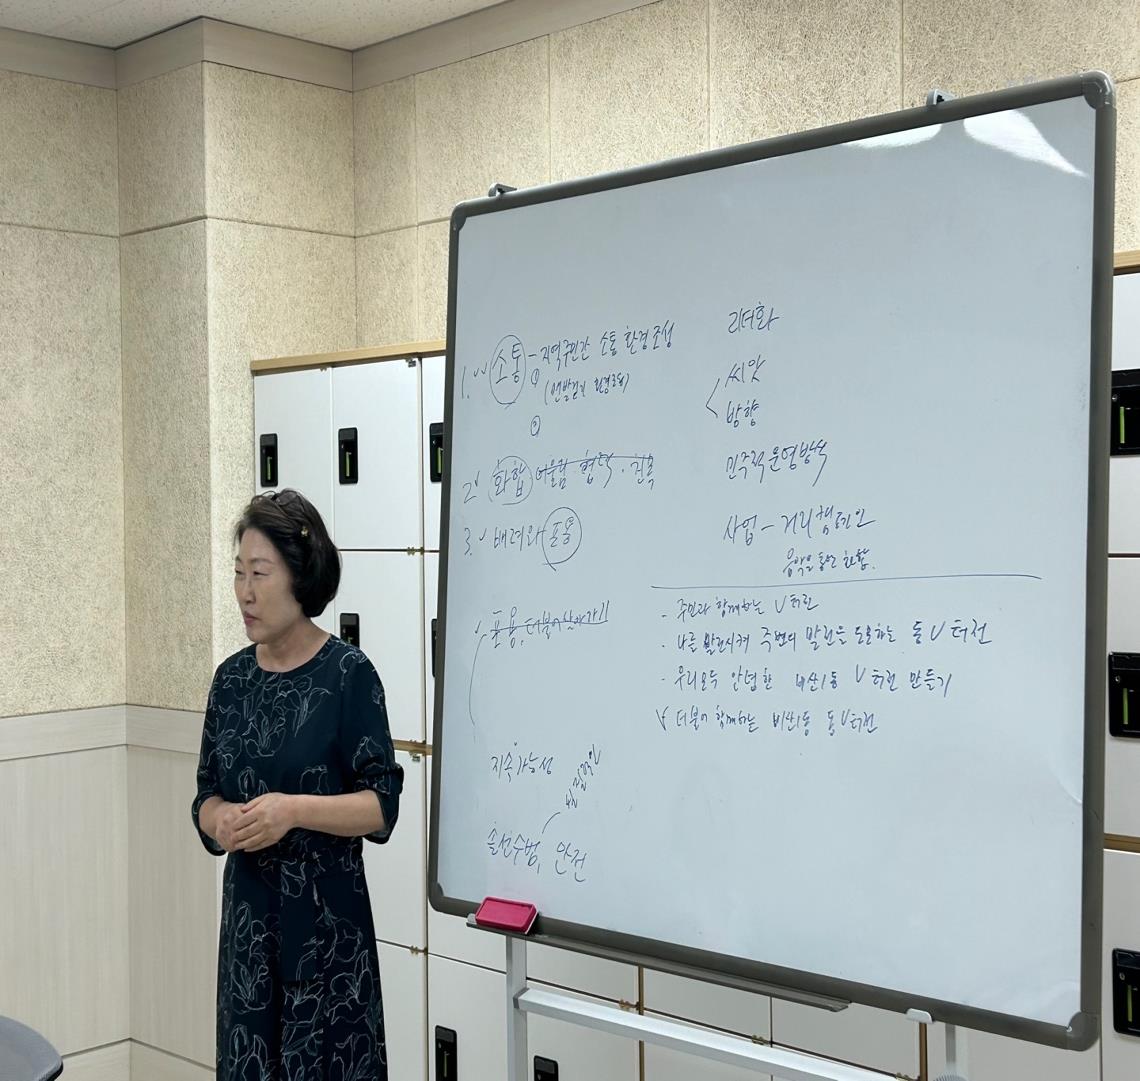 1. ✓✓ 소통 - 지역주민간 소통 환경조성
①
②
2 ✓ 화합 어울림 협력 · 친목
3. ✓ 배려와 포용
포용, 더불어살아가기
지속가능성
솔선수범, 안전
리더화
씨앗
방향
민주적 운영방식
사업 - 거리캠페인
음악을 통한 화합.
- 주민과 함께하는 V터전
· 나를 발전시켜 주변의 발전을 도모하는 동V터전
- 우리모두 안녕한 비산1동 V터전 만들기
더불어 함께하는 비산1동 동V터전